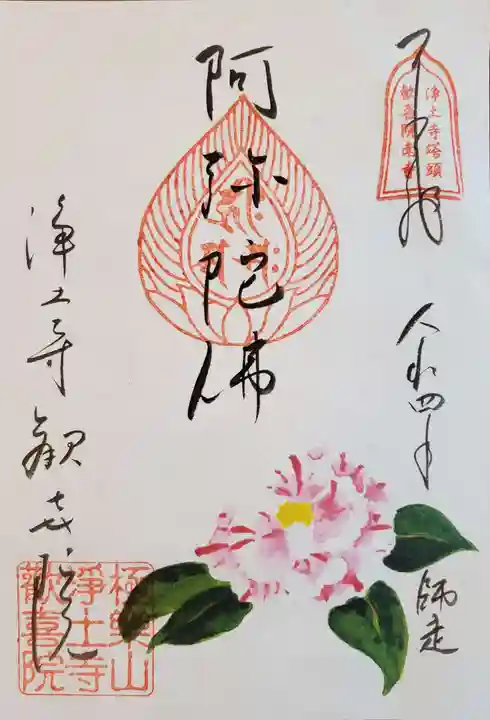 奉拝
浄土寺塔頭
歓喜院南寺
令和四年
師走
阿弥陀佛
浄土寺歓喜院
極樂山
淨土寺
歡喜院